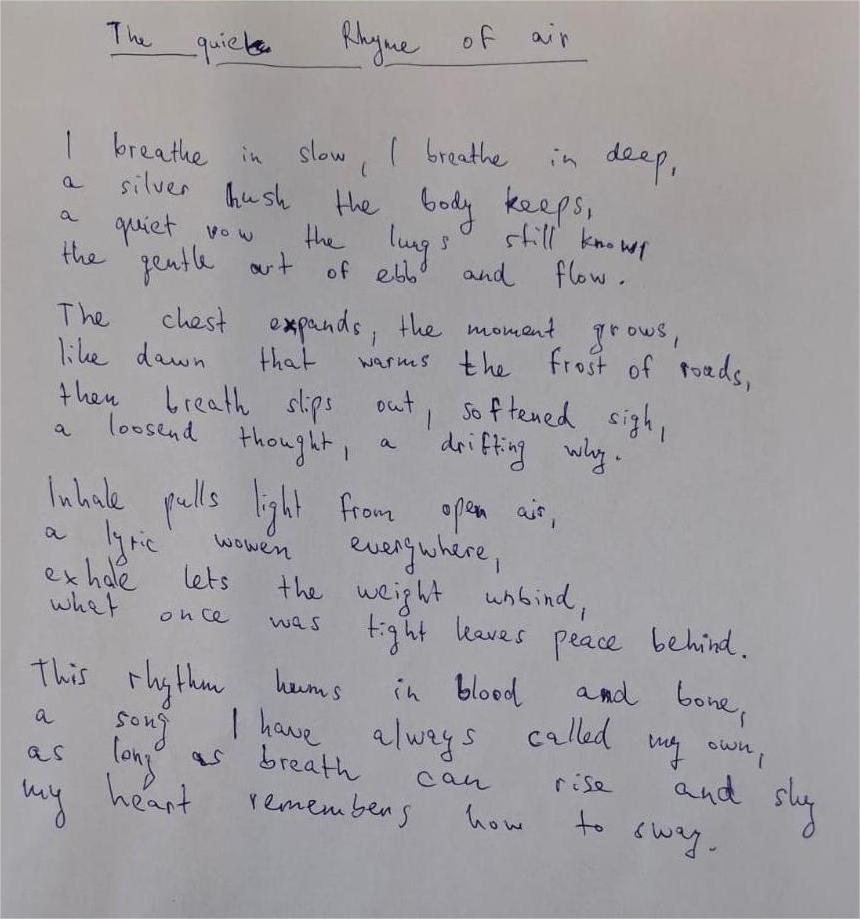 The quiet Rhyme of air
I breathe in slow, I breathe in deep,
a silver hush the body keeps,
a quiet vow the lungs still know,
the gentle art of ebb and flow.
The chest expands, the moment grows,
like dawn that warms the frost of roads,
then breath slips out, softened sigh,
a loosend thought, a drifting why.
Inhale pulls light from open air,
a lyric wowen everywhere,
exhale lets the weight unbind,
what once was tight leaves peace behind.
This rhythm hums in blood and bone,
a song I have always called my own,
as long as breath can rise and
my heart remembers how to sway.